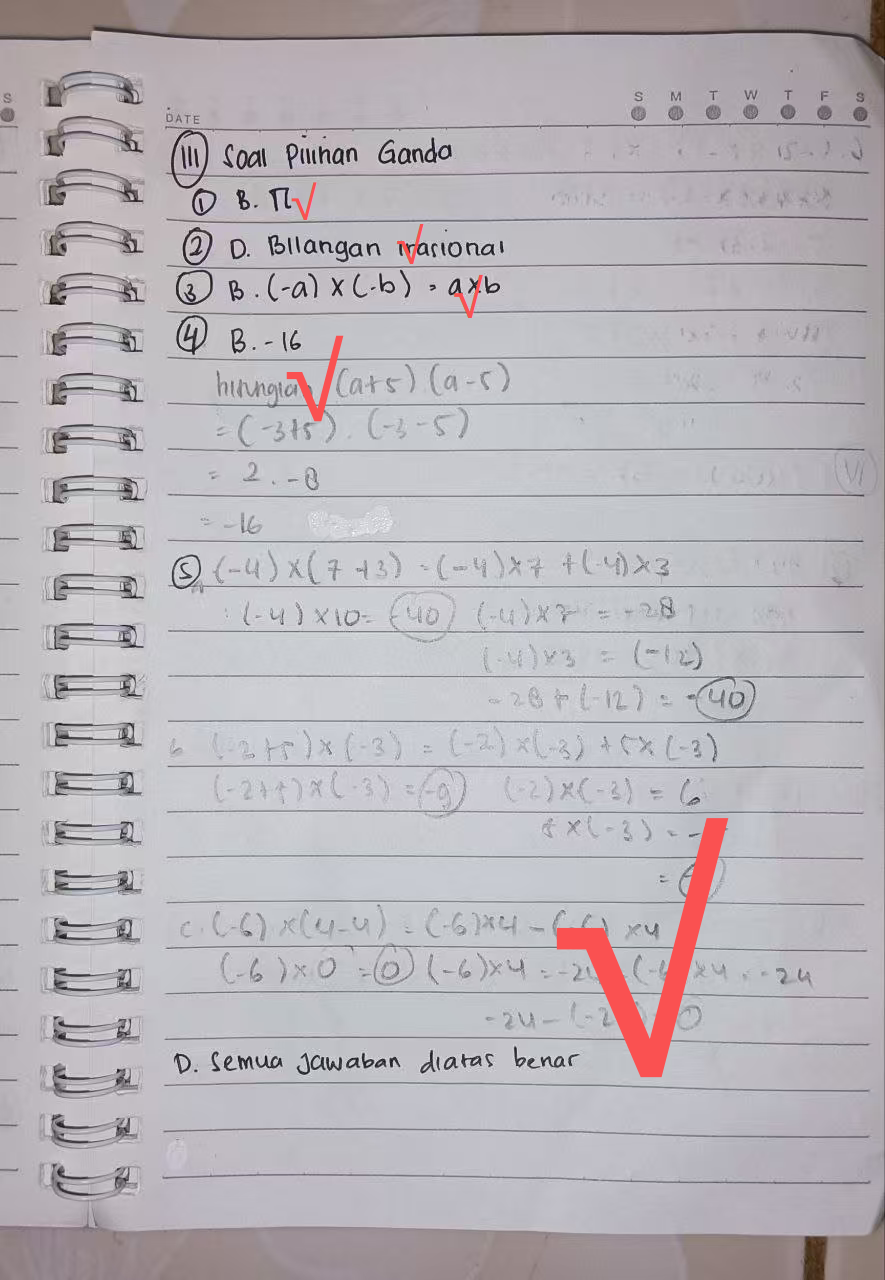 S
S M T W T F S
DATE
III Soal Pilihan Ganda
① B. π √
② D. Bilangan irrasional
③ B. (-a) × (-b) = a×b
④ B. -16
(a+5) (a-5)
= (-3+5) . (-3-5)
= 2 . -8
= -16
⑤ (-4) × (7+3) = (-4)×7 + (-4)×3
: (-4) ×10= -40 (-4)×7 = -28
(-4)×3 = (-12)
-28 + (-12) = -40
b (-2+5)×(-3) = (-2)×(-3) + 5×(-3)
(-2+5)×(-3) = -9 (-2)×(-3) = 6
×(-3) = -
=
C. (-6) ×(4-4) = (-6)×4 - (-6) ×4
(-6)×0 = 0 (-6)×4 = ×4 = -24
-24 - 0
D. Semua jawaban diatas benar